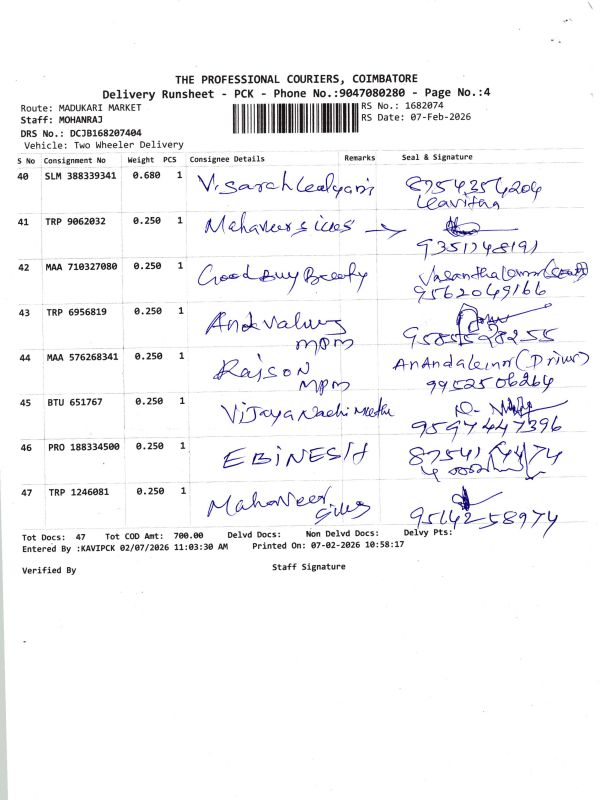 THE PROFESSIONAL COURIERS, COIMBATORE
Delivery Runsheet - PCK - Phone No.:9047080280 - Page No.:4
Route: MADUKARI MARKET
RS No.: 1682074
Staff: MOHANRAJ
RS Date: 07-Feb-2026
DRS No.: DCJB168207404
Vehicle: Two Wheeler Delivery
S No Consignment No Weight PCS Consignee Details Remarks Seal & Signature
40 SLM 388339341 0.680 1 V. Sarah 8754354204
41 TRP 9062032 0.250 1 Mahaveer
9351148191
42 MAA 710327080 0.250 1 Good Buy
9562049166
43 TRP 6956819 0.250 1
MPM 9585598255
44 MAA 576268341 0.250 1 Raison (Driver)
MPM 9952506264
45 BTU 651767 0.250 1 Vijaya
9597447396
46 PRO 188334500 0.250 1 EBINESH
47 TRP 1246081 0.250 1 Mahaveer
9514258974
Tot Docs: 47 Tot COD Amt: 700.00 Delvd Docs: Non Delvd Docs: Delvy Pts:
Entered By :KAVIPCK 02/07/2026 11:03:30 AM Printed On: 07-02-2026 10:58:17
Verified By Staff Signature